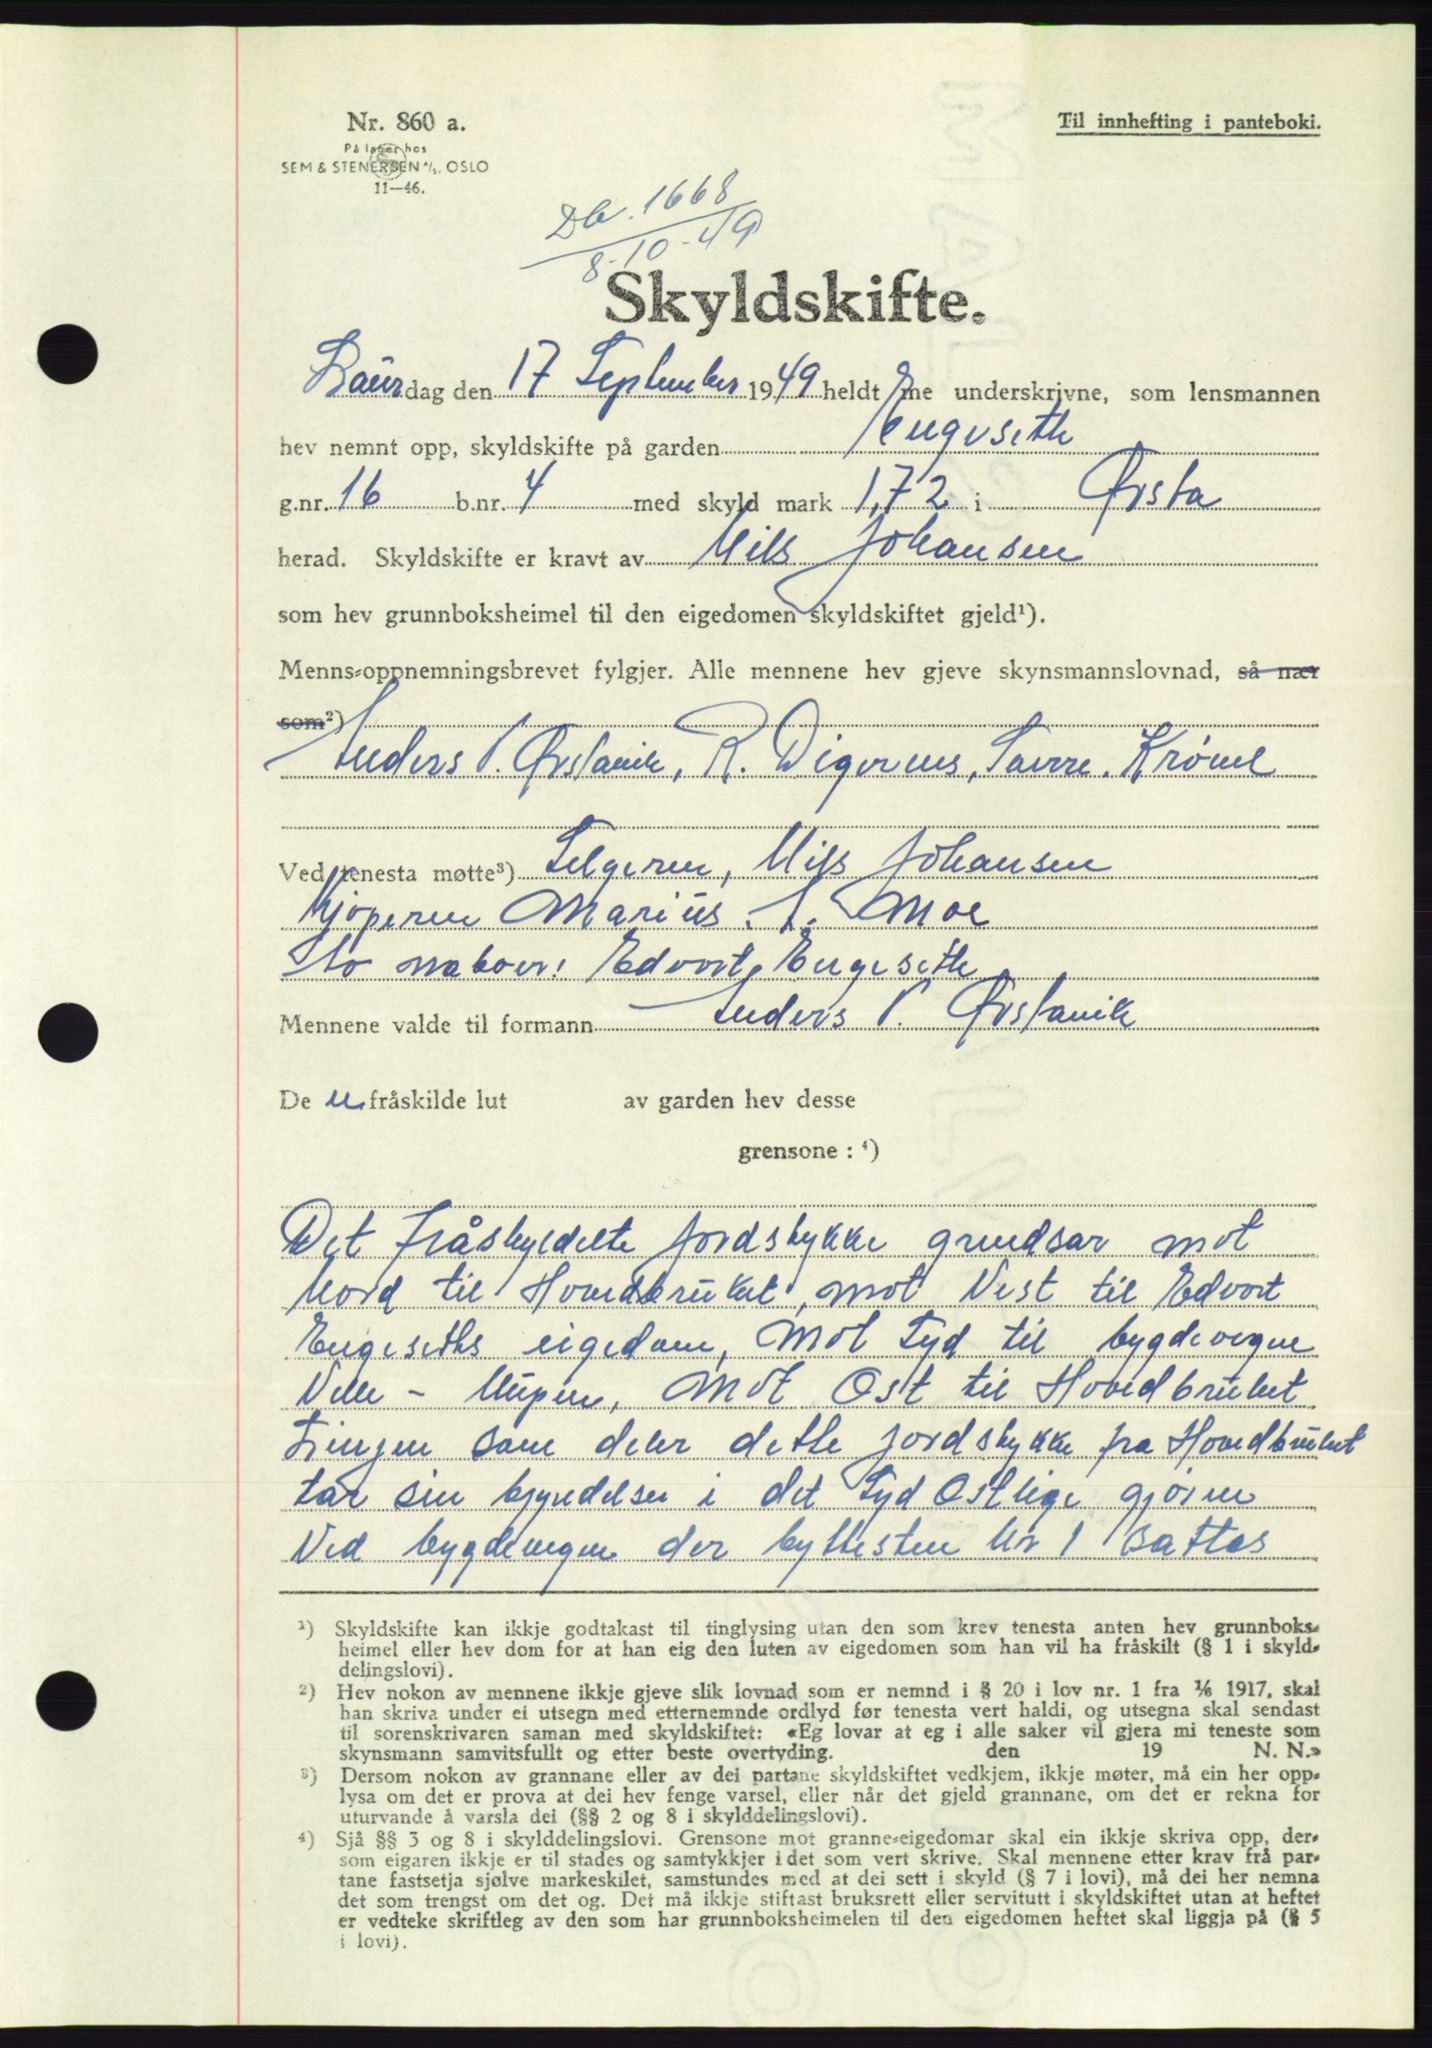 Nr. 860 a.
På lager hos
SEM & STENERSEN A/S, OSLO
11—46.
Til innhefting i panteboki.
Db. 1668
8-10-49
Skyldskifte.
Laurdag den 17 September 1949 heldt me underskrivne, som lensmannen
hev nemnt opp, skyldskifte på garden Engeseth
g.nr. 16 b.nr. 4 med skyld mark 1,72 i Ørsta
herad. Skyldskifte er kravt av Nils Johansen
som hev grunnboksheimel til den eigedomen skyldskiftet gjeld¹).
Menns-oppnemningsbrevet fylgjer. Alle mennene hev gjeve skynsmannslovnad, så nær
som²)
Anders V. Ørstavik, R. Digernes, Sverre Krøvel
Ved tenesta møtte³) Selgeren, Nils Johansen
Kjøperen Marius. A. Moe
Av naboer: Edvart Engeseth
Mennene valde til formann Anders V. Ørstavik
De n fråskilde lut av garden hev desse
grensone : ⁴)
Det fråskyldelte jordstykke grendsar mot
Nord til Hovedbruket, mot Vest til Edvart
Engeseths eigedom, Mot Syd til bygdevegen
Velle - Nupen, Mot Ost til Hovedbruket
Linjen som deler dette jordstykke fra Hovedbruket
tar sin byndelse i det Syd Ostlige gjørne
Ved bygdevegen der byttesten Nr 1 sattes
¹) Skyldskifte kan ikkje godtakast til tinglysing utan den som krev tenesta anten hev grunnboks-
heimel eller hev dom for at han eig den luten av eigedomen som han vil ha fråskilt (§ 1 i skyld-
delingslovi).
²) Hev nokon av mennene ikkje gjeve slik lovnad som er nemnd i § 20 i lov nr. 1 fra 1/6 1917, skal
han skriva under ei utsegn med etternemnde ordlyd før tenesta vert haldi, og utsegna skal sendast
til sorenskrivaren saman med skyldskiftet: «Eg lovar at eg i alle saker vil gjera mi teneste som
skynsmann samvitsfullt og etter beste overtyding. den 19 N. N.»
³) Dersom nokon av grannane eller av dei partane skyldskiftet vedkjem, ikkje møter, må ein her opp-
lysa om det er prova at dei hev fenge varsel, eller når det gjeld grannane, om det er rekna for
uturvande å varsla dei (§§ 2 og 8 i skylddelingslovi).
⁴) Sjå §§ 3 og 8 i skylddelingslovi. Grensone mot granne-eigedomar skal ein ikkje skriva opp, der-
som eigaren ikkje er til stades og samtykkjer i det som vert skrive. Skal mennene etter krav frå par-
tane fastsetja sjølve markeskilet, samstundes med at dei sett i skyld (§ 7 i lovi), må dei her nemna
det som trengst om det og. Det må ikkje stiftast bruksrett eller servitutt i skyldskiftet utan at heftet
er vedteke skriftleg av den som har grunnboksheimelen til den eigedomen heftet skal liggja på (§ 5
i lovi).